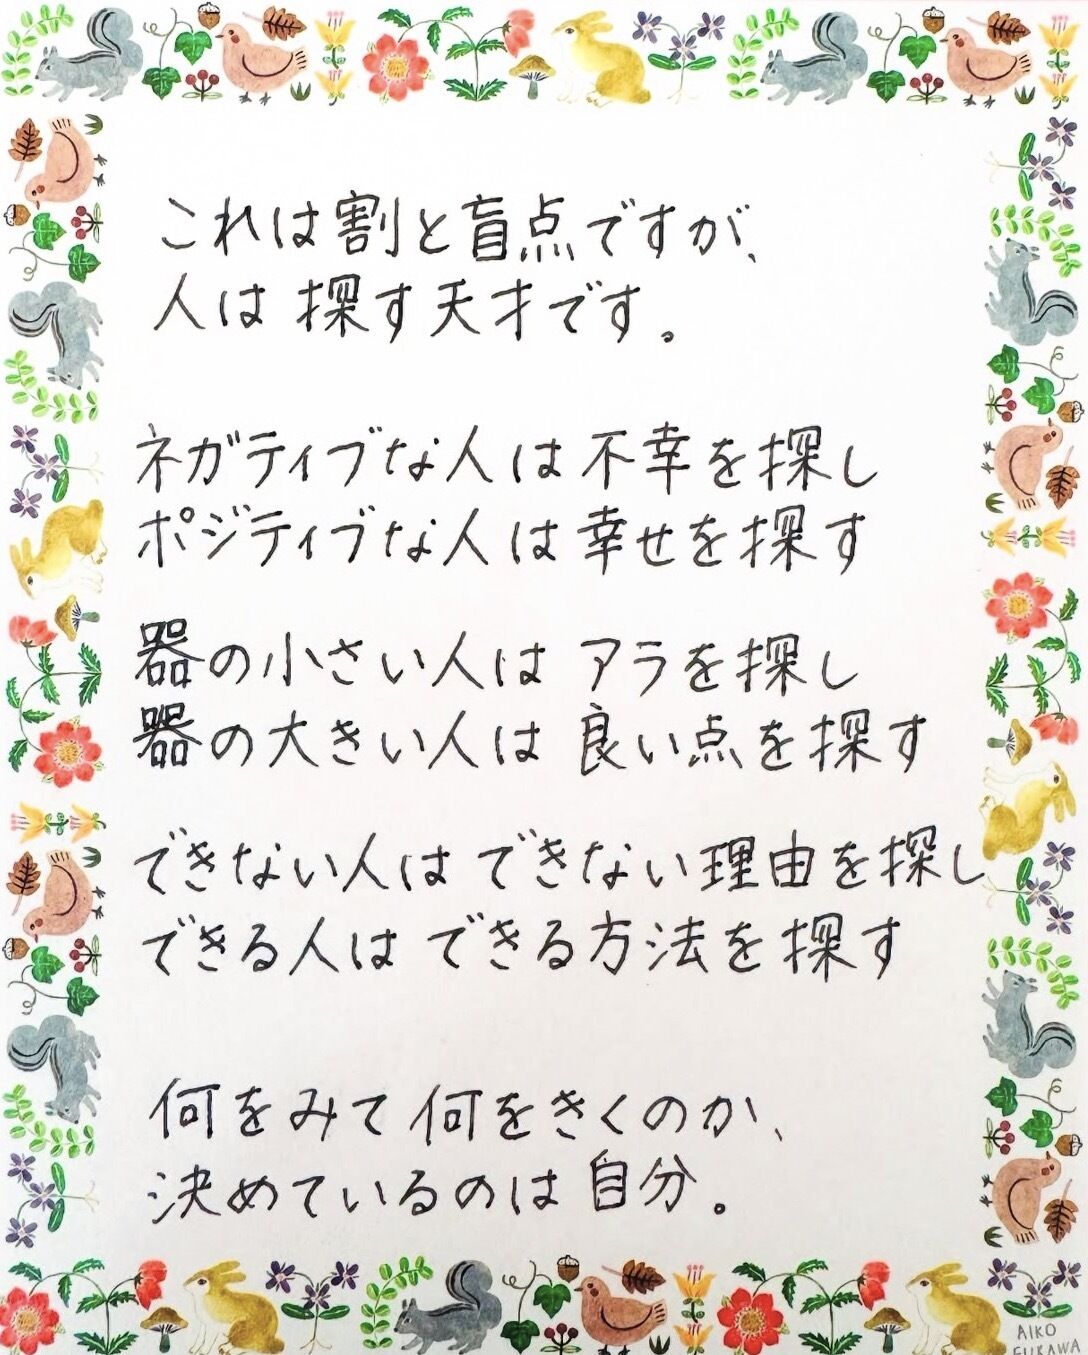 これは割と盲点ですが、
人は探す天才です。
ネガティブな人は不幸を探し
ポジティブな人は幸せを探す
器の小さい人はアラを探し
器の大きい人は良い点を探す
できない人はできない理由を探し
できる人はできる方法を探す
何をみて何をきくのか、
決めているのは自分。
AIKO
FUKAWA